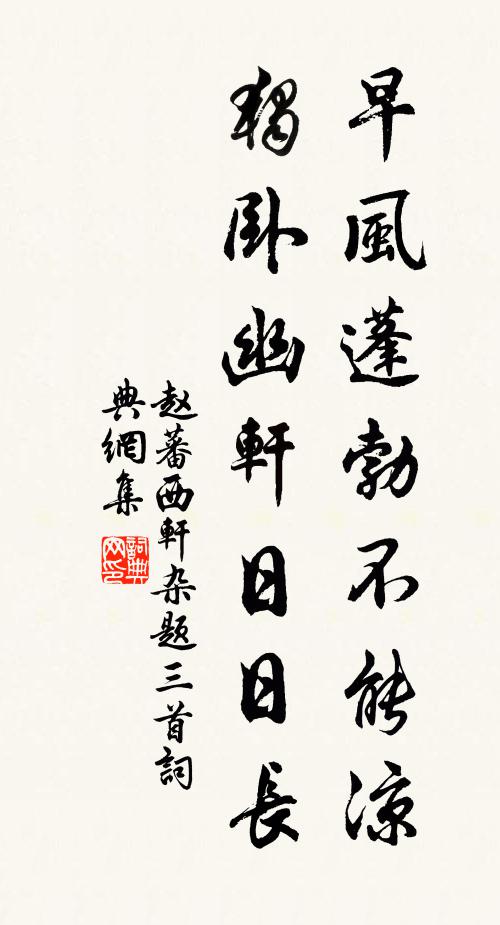 早風蓬勃不能涼
獨卧幽軒日日長
赵蕃西軒杂题三首詞
典網集
詞典
网印